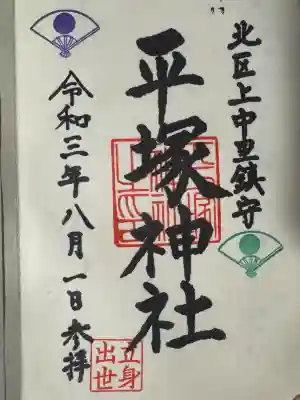 北区上中里鎮守
平塚神社
令和三年八月一日参拝
立身
出世